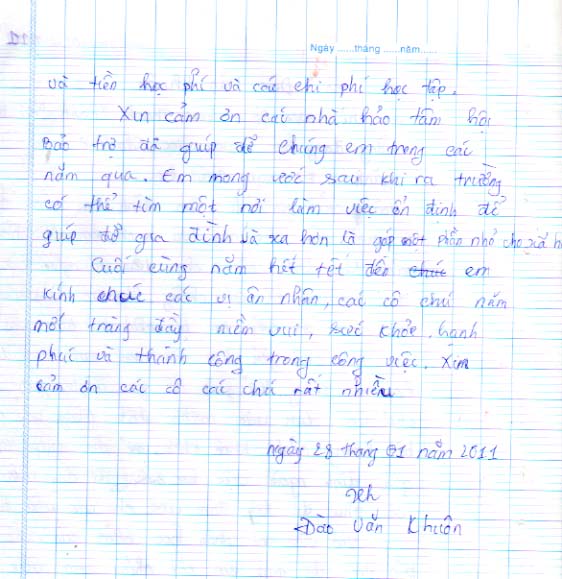 Ngày ......tháng ......năm......
và tiền học phí và các chi phí học tập.
Xin cảm ơn các nhà hảo tâm hội
Bảo trợ đã giúp đỡ chúng em trong các
năm qua. Em mong ước sau khi ra trường
có thể tìm một nơi làm việc ổn định để
giúp đỡ gia đình và xa hơn là góp một phần nhỏ cho xã h
Cuối cùng năm hết tết đến chúc em
kính chúc các vị ân nhân, các cô chú năm
mới tràng đầy niềm vui, sức khỏe, hạnh
phúc và thành công trong công việc. Xin
cảm ơn các cô các chú rất nhiều
ngày 28 tháng 01 năm 2011
Đào Văn Khuôn